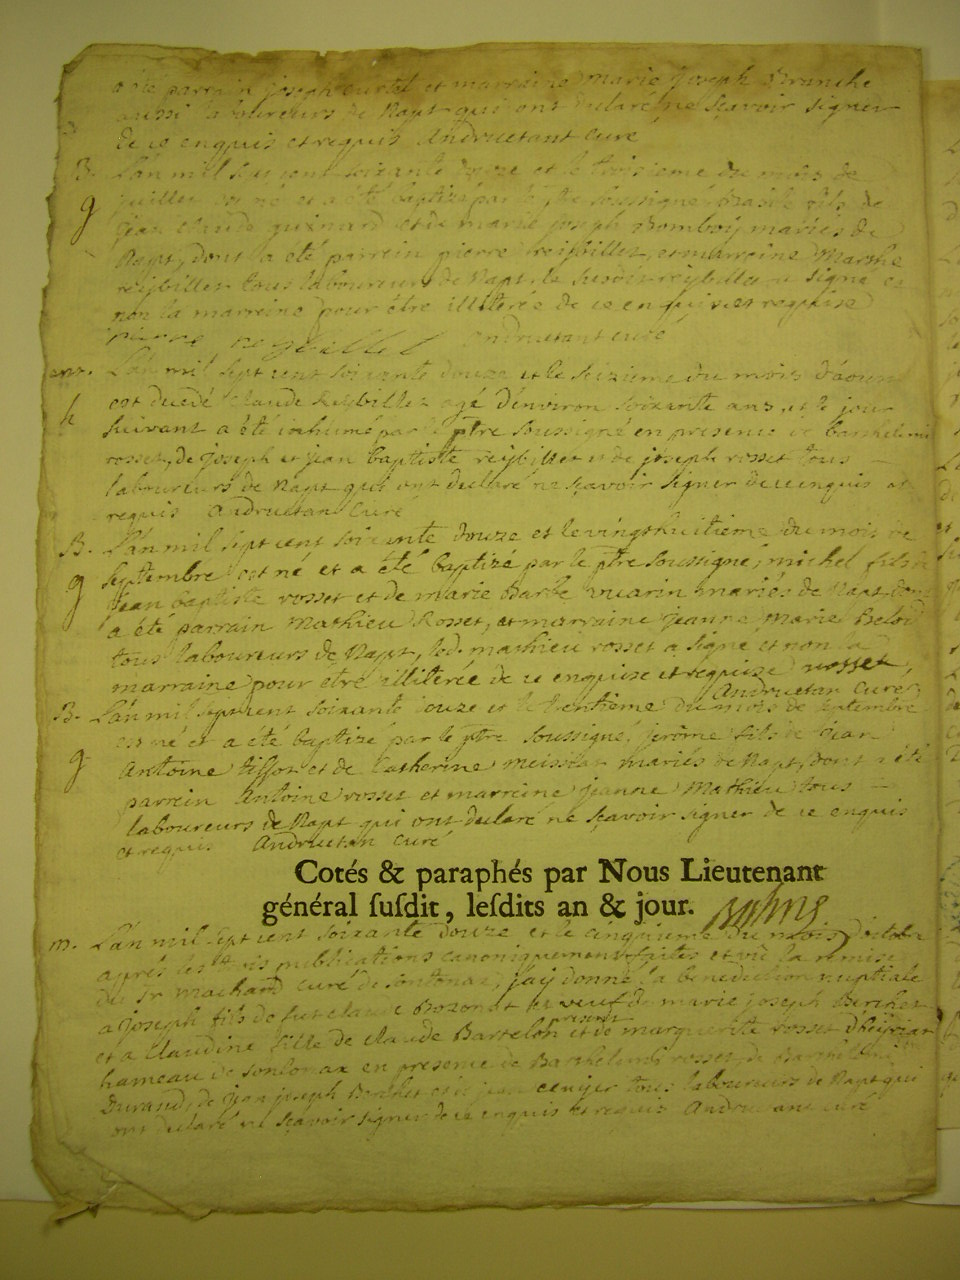 a été parrain joseph curtet et marraine marie joseph Brunche
aussi laboureurs de Napt qui ont declaré ne sçavoir signer
de ce enquis et requis Andruetant curé
B. L'an mil sept cent soixante douze et le troisieme du mois de
g juillet est né et a été baptizé par le ptre soussigné, basile fils de
jean claude guinard et de marie joseph Bomboy mariés de
Napt, dont a été parrein pierre reijbillet, et marreine Marthe
reijbillet tous laboureurs de Napt, le susdit reijbillet a signé et
non la marreine pour être illiterée de ce enquise et requise
pierre reijbillet Andruetant curé
L'an mil sept cent soixante douze et le seizieme du mois d'aoust
h est decedé claude Reijbillet agé d'environ soixante ans, et le jour
suivant a été inhumé par le ptre soussigné en presence de barthelemi
rosset, de joseph et jean baptiste reijbillet et de joseph rosset tous
laboureurs de Napt qui ont declaré ne sçavoir signer de ce enquis et
requis Andruetan curé
B. L'an mil sept cent soixante douze et le vingt huitieme du mois de
g septembre est né et a été baptizé par le ptre soussigné, michel fils de
jean baptiste rosset et de marie Barbe vuarin mariés de Napt, dont
a été parrain Mathieu Rosset, et marraine jeanne Marie Belod
tous laboureurs de Napt, led. mathieu rosset a signé et non la
marraine pour être illiterée de ce enquise et requise rosset,
Andruetan Curé
B. L'an mil sept cent soixante douze et le trentieme du mois de septembre
g est né et a été baptizé par le ptre soussigné, jerôme fils de jean
Antoine tissot et de Catherine meissiat mariés de Napt, dont a été
parrein Antoine rosset et marreine jeanne Mathieu tous
laboureurs de Napt qui ont declaré ne sçavoir signer de ce enquis
et requis Andruetan curé
Cotés & paraphés par Nous Lieutenant
général ſuſdit, leſdits an & jour.
m. L'an mil sept cent soixante douze et le cinquieme du mois d'octobre
aprés les trois publications canoniquement faites et vû la remise
du Sr machard curé de sontonax, j'ay donné la benediction nuptiale
a joseph fils de fut claude Bozonet veuf de marie joseph Berchet
et a claudine fille de claude Bartelon present et de marguerite rosset d'heyriat
hameau de sontonax en presence de Barthelemi rosset, de Barthelemi
Durand, de jean joseph Berchet et de jean tous laboureurs de Napt qui
ont declaré ne sçavoir signer de ce enquis et requis Andruetant curé